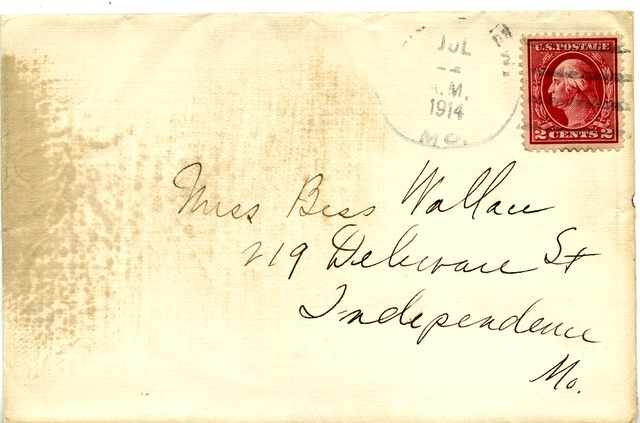 JUL
A.M.
1914
MO.
U.S. POSTAGE
2 CENTS 2
Miss Bess Wallace
219 Delaware St
Independence
Mo.